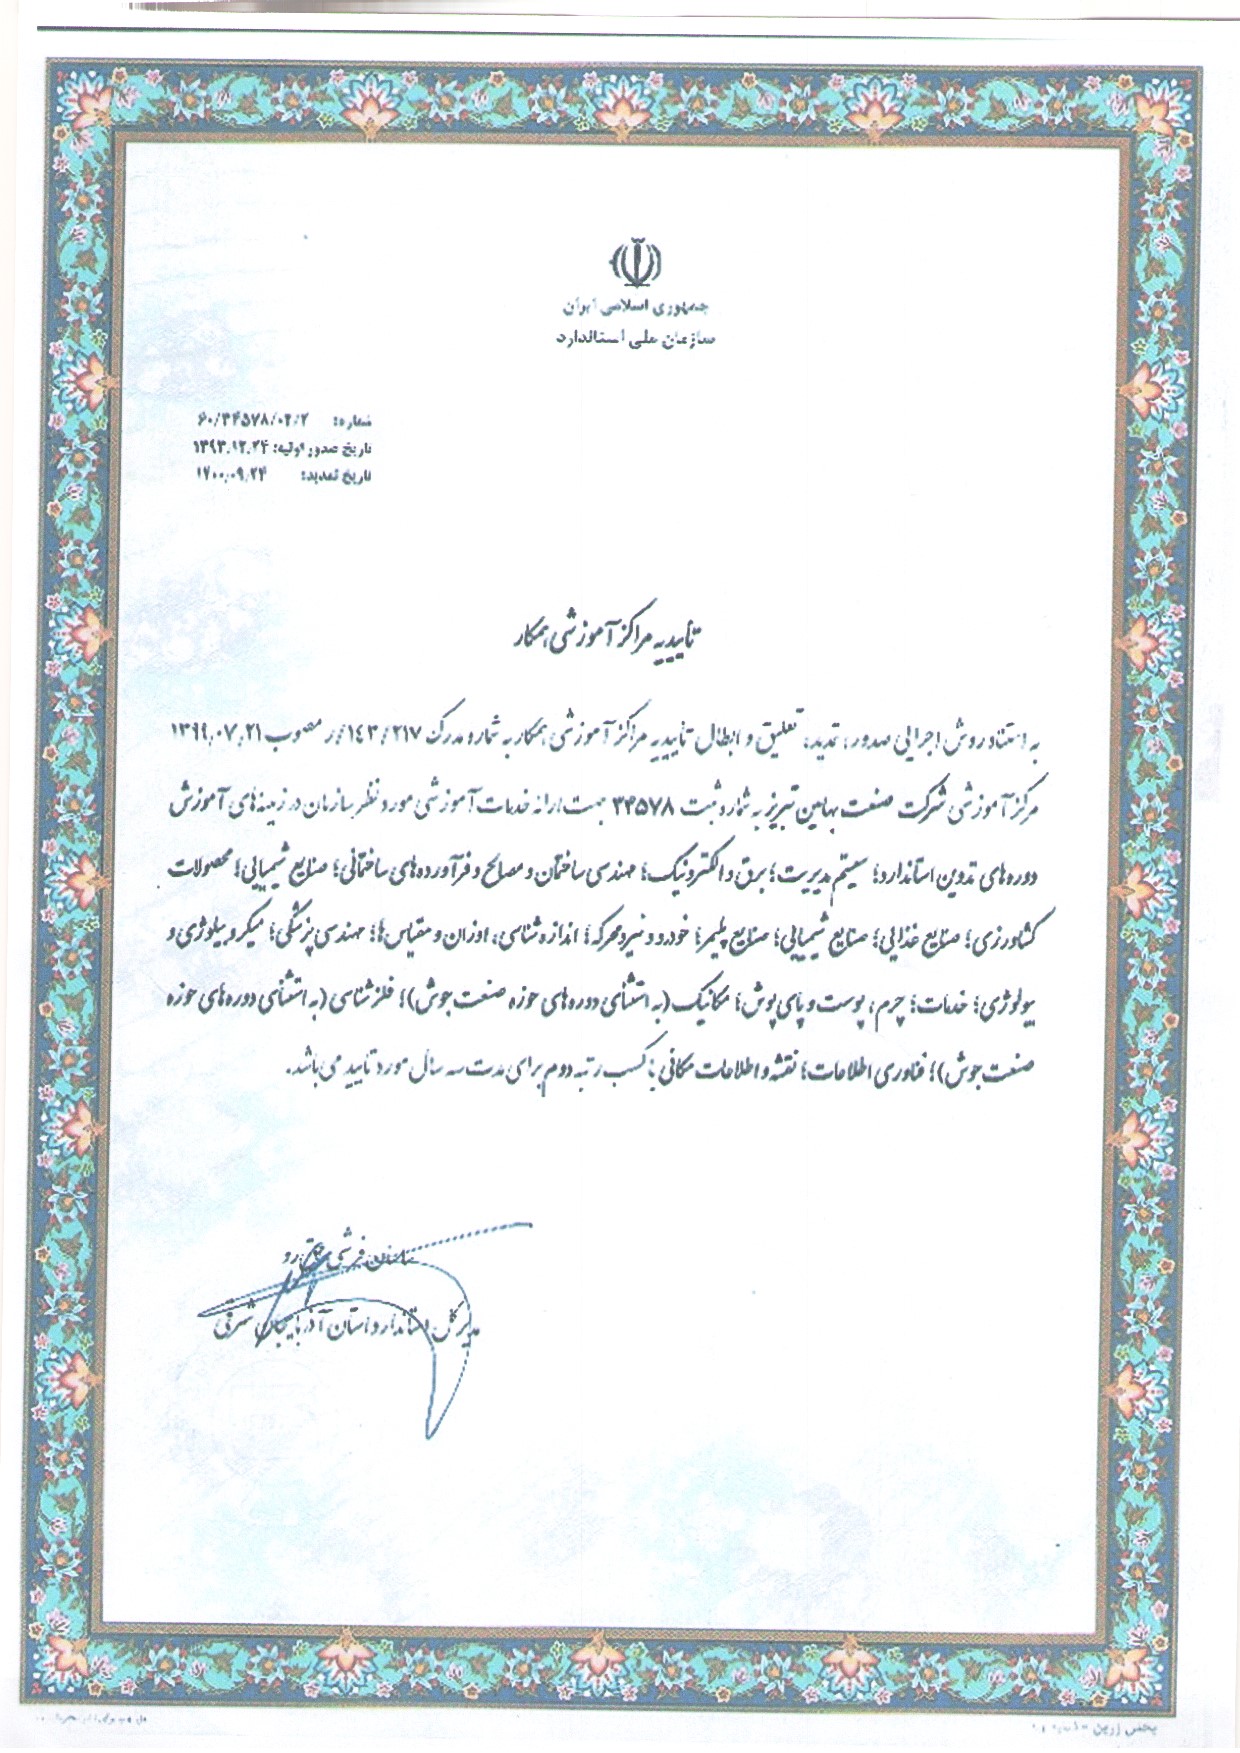 جمهوری اسلامی ایران
سازمان ملی استاندارد
شماره: ۶۰/۳۴۵۷۸/۰۲/۲
تاریخ صدور اولیه: ۱۳۹۳.۱۲.۲۴
تاریخ تمدید: ۱۴۰۰.۰۹.۲۴
تأییدیه مراکز آموزشی همکار
به استناد روش اجرایی صدور، تمدید، تعلیق و ابطال تأییدیه مراکز آموزشی همکار به شماره مدرک ۱۴۳/۲۱۷/ر مصوب ۱۳۹۹.۰۷.۲۱
مرکز آموزشی شرکت صنعت بهامین تبریز به شماره ثبت ۳۴۵۷۸ جهت ارائه خدمات آموزشی مورد نظر سازمان در زمینه‌های آموزش
دوره‌های تدوین استاندارد؛ سیستم مدیریت؛ برق و الکترونیک؛ مهندسی ساختمان و مصالح و فرآورده‌های ساختمانی؛ صنایع شیمیایی؛ محصولات
کشاورزی؛ صنایع غذایی؛ صنایع شیمیایی؛ صنایع پلیمر؛ خودرو و نیرو محرکه؛ اندازه شناسی، اوزان و مقیاس‌ها؛ مهندسی پزشکی؛ میکروبیولوژی و
بیولوژی؛ خدمات؛ چرم، پوست و پای پوش؛ مکانیک (به استثنای دوره‌های حوزه صنعت جوش)؛ فلزشناسی (به استثنای دوره‌های حوزه
صنعت جوش)؛ فناوری اطلاعات؛ نقشه و اطلاعات مکانی با کسب رتبه دوم برای مدت سه سال مورد تایید می‌باشد.
مدیر کل استاندارد استان آذربایجان شرقی
پخش زرین